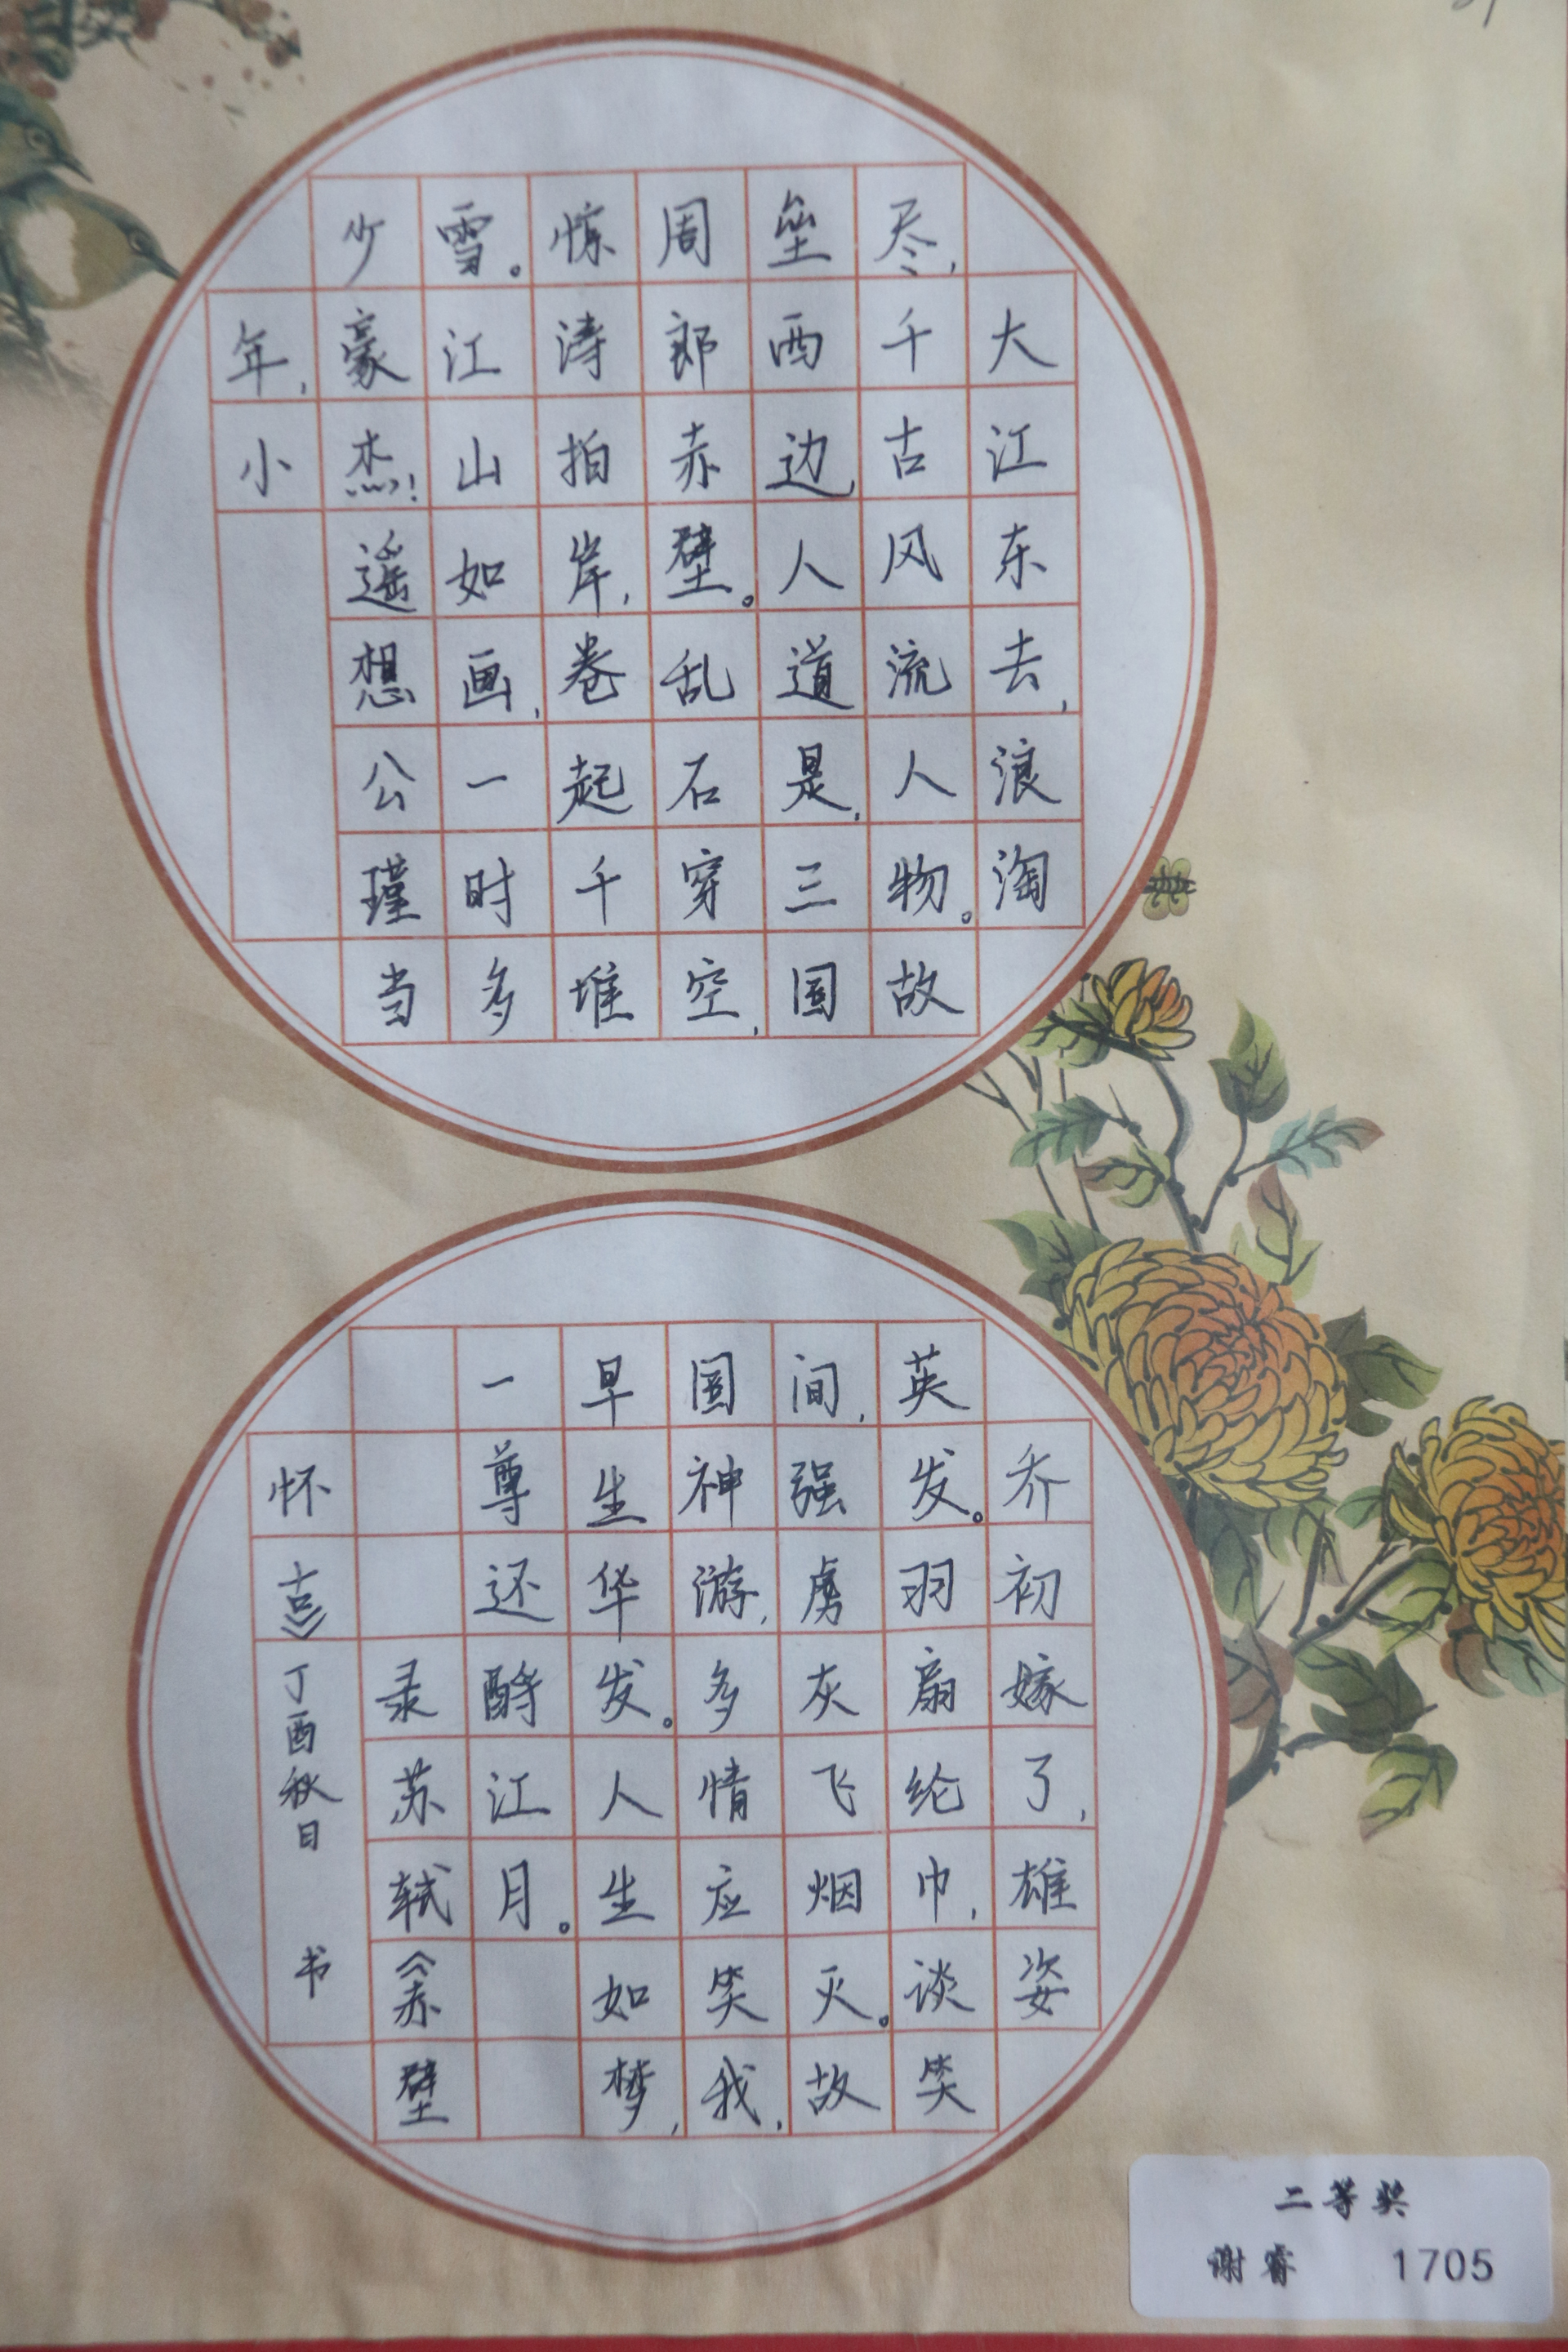 大江东去,浪淘
尽,千古风流人物。故
垒西边,人道是,三国
周郎赤壁。乱石穿空,
惊涛拍岸,卷起千堆
雪。江山如画,一时多
少豪杰!遥想公瑾当
年,小
乔初嫁了,雄姿
英发。羽扇纶巾,谈笑
间,强虏灰飞烟灭。故
国神游,多情应笑我,
早生华发。人生如梦,
一尊还酹江月。
录苏轼《赤壁
怀古》丁酉秋日 书
二等奖
谢睿 1705